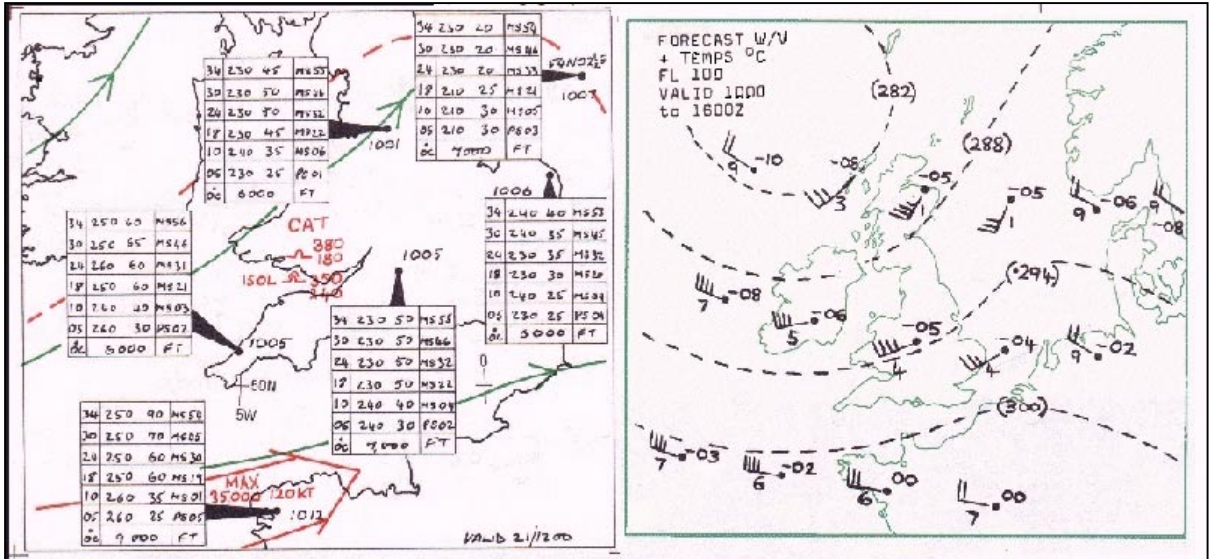 34 230 20 MS54
30 230 20 MS46
24 230 20 MS33
18 210 25 MS21
10 210 30 MS05
05 210 30 PS03
0°c 7000 FT
1007
34 230 45 MS55
24 230 50 MS32
18 230 45 MS22
10 240 35 MS06
05 230 25 PS01
0°c 6000 FT
1001
1006
34 240 40 MS53
30 240 35 MS45
24 230 35 MS32
18 230 30 MS20
10 240 25 MS04
05 230 25 PS04
0°c 5000 FT
34 250 60 MS56
30 250 65 MS46
24 260 60 MS31
18 250 60 MS21
10 260 40 MS03
05 260 30 PS02
0°c FT
1005
CAT
380
180
ISOL 350
1005
34 230 50 MS55
30 230 50 MS46
24 230 50 MS32
18 230 50 MS22
10 240 40 MS04
05 240 30 PS02
0°c FT
0
50N
5W
34 250 90 MS54
30 250 70
24 250 60 MS30
18 250 60 MS19
10 260 35 MS01
05 260 25 PS05
0°c 9000 FT
MAX
35000 120KT
1012
VALID 21/1200
FORECAST W/V
+ TEMPS °C
FL 100
VALID 1000
to 1600Z
(282)
(288)
(294)
(300)
9 -10
3 -08
1 -05
1 -05
9 -06
9 -08
7 -08
5 -06
4 -05
4 -04
9 -02
7 -03
6 -02
6 00
7 00